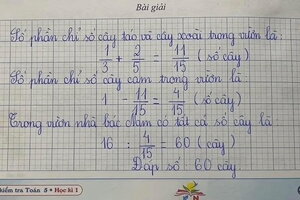 Bài giải
Số phần chỉ số cây táo và cây xoài trong vườn là:
1/3 + 2/5 = 11/15 (số cây)
Số phần chỉ số cây cam trong vườn là:
1 - 11/15 = 4/15 (số cây)
Trong vườn nhà bác Nam có tất cả số cây là:
16 : 4/15 = 60 (cây)
Đáp số: 60 cây.
kiểm tra Toán 5 • Học kì 1